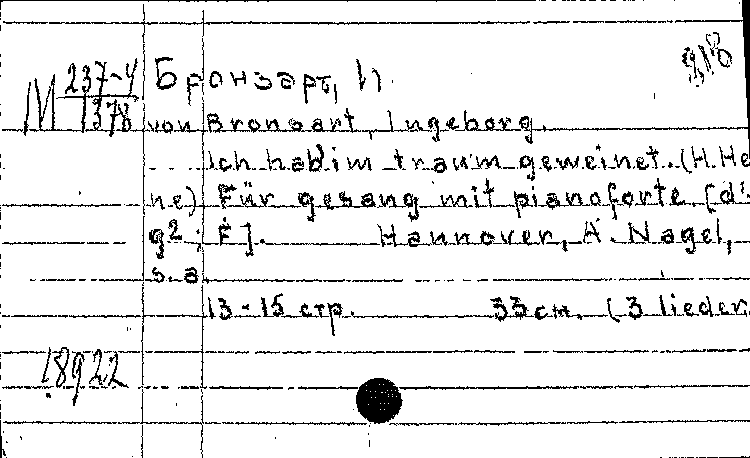 М 237-4
1378
Бронзарт, И.
918
von Bronsart, Ingeborg.
Ich hab' im traum geweinet. (H. Hei
ne) Für gesang mit pianoforte [d¹-
g²; F]. Hannover, A. Nagel,
s. a.
13-15 стр. 33 см. (3 lieder.
18922